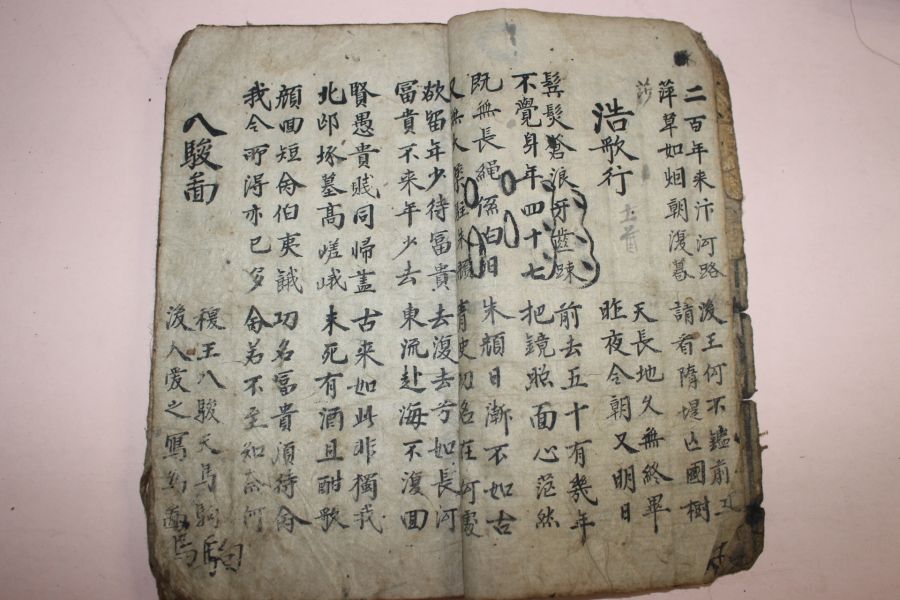 二百年来汴河路
萍草如烟朝復暮
後王何不鑑前王
請看隋堤亡國樹
浩歌行
天長地久無終畢
昨夜今朝又明日
鬂髮蒼浪牙齒踈
不覺身年四十七
前去五十有幾年
把鏡照面心茫然
既無長繩係白日
又無大藥駐朱顔
朱顔日漸不如古
青史功名在何處
欲留年少待冨貴
冨貴不来年少去
去復去兮如長河
東流赴海不復回
賢愚貴賤同帰盖
北邙塚墓髙嵯峨
古来如此非獨我
未死有酒且酣歌
顔回短命伯夷餓
我今所得亦已多
功名冨貴須待命
命若不至知奈何
八駿啚
穆王八駿天馬駒
後人愛之寫為啚
馬駒